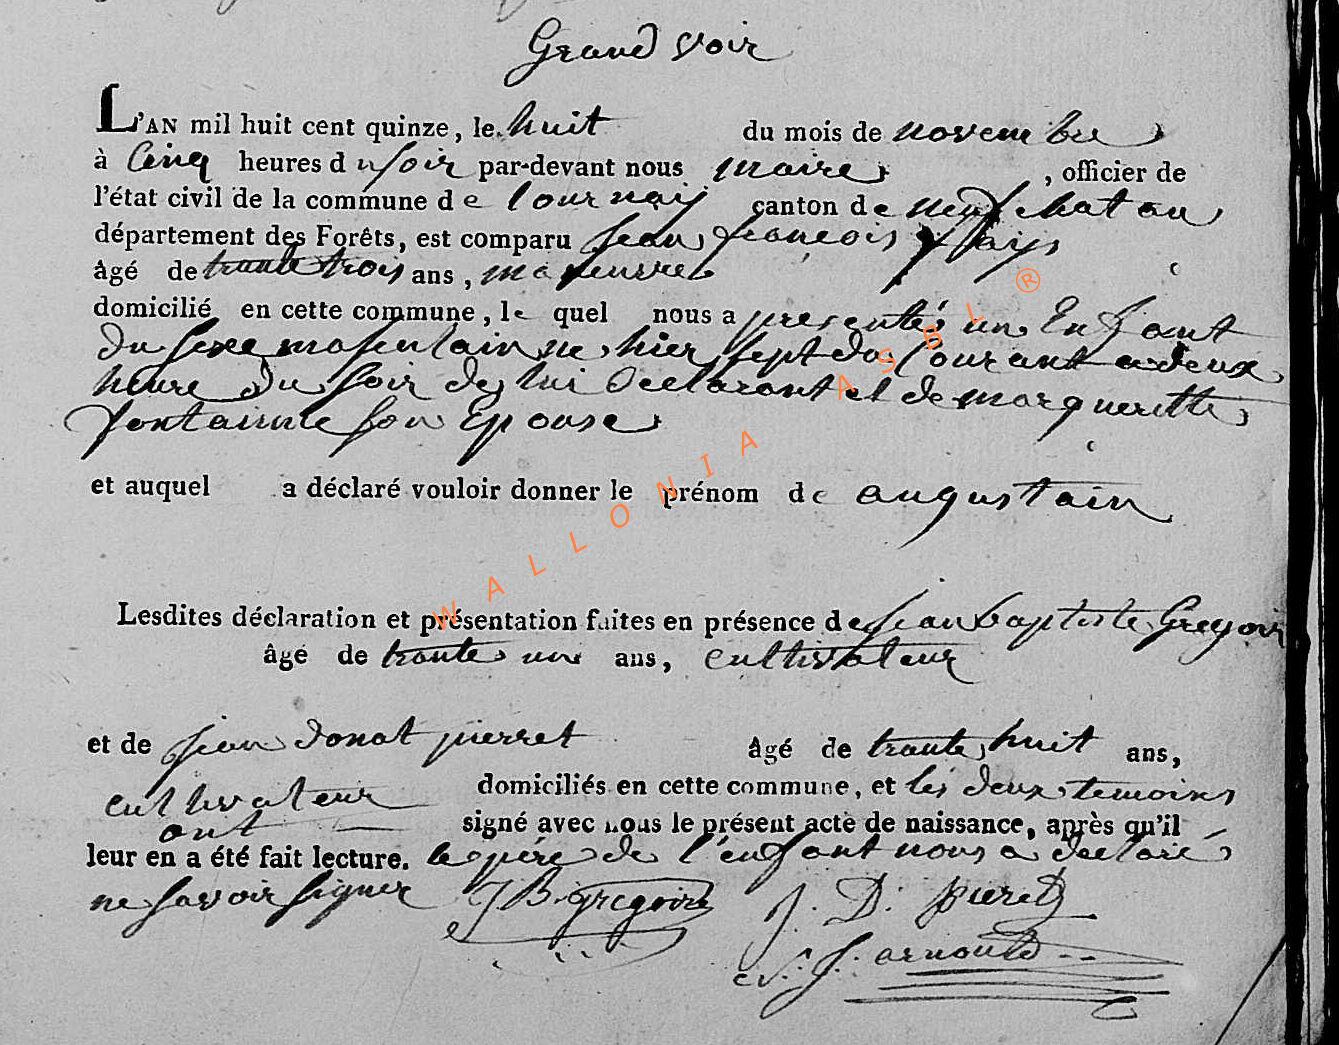 Grand Voir
L'AN mil huit cent quinze, le huit du mois de novembre
à Cinq heures du soir par-devant nous maire, officier de
l'état civil de la commune de tournay canton de neufchatau
département des Forêts, est comparu jean françois
âgé de trante trois ans,
domicilié en cette commune, le quel nous a presenté un Enfant
du sexe masculain ne hier sept du courant a deux
heure du soir de lui declarant et de margueritte
fontainne son Epouse
et auquel a déclaré vouloir donner le prénom de augustain
Lesdites déclaration et présentation faites en présence de jean baptiste Gregoir
âgé de trante un ans, cultivateur
et de jean donat pierret âgé de trante huit ans,
cultivateur domiciliés en cette commune, et les deux temoins
ont signé avec nous le présent acte de naissance, après qu'il
leur en a été fait lecture. le père de l'enfant nous a declaré
ne savoir signer J B. gregoire J. D. pieret
arnould
WALLONIA ASBL ®